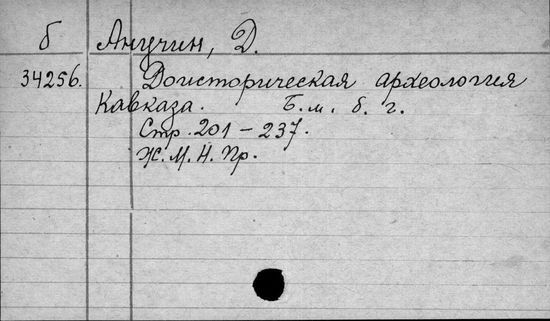 б Анучин, Д.
34256. Доисторическая археология
Кавказа. Б. м. б. г.
Стр. 201 – 237.
Ж. М. Н. Пр.